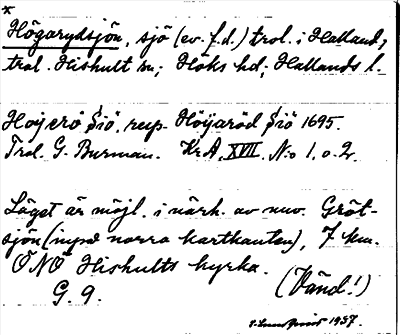 *
Högarydsjön, sjö (ev. f.d.) trol. i Halland,
trol. Hishult sn; Höks hd; Hallands l.
Hoÿerö Siö, resp. Höijaröd Siö 1695.
Trol. G. Burman. KrA, XVII, N:o 1, o. 2.
Läget är möjl. i närh. av nuv. Gröt-
sjön (inpå norra kartkanten), 7 km.
ÖNÖ Hishults kyrka.
G. 9. (Vänd!)
1937.